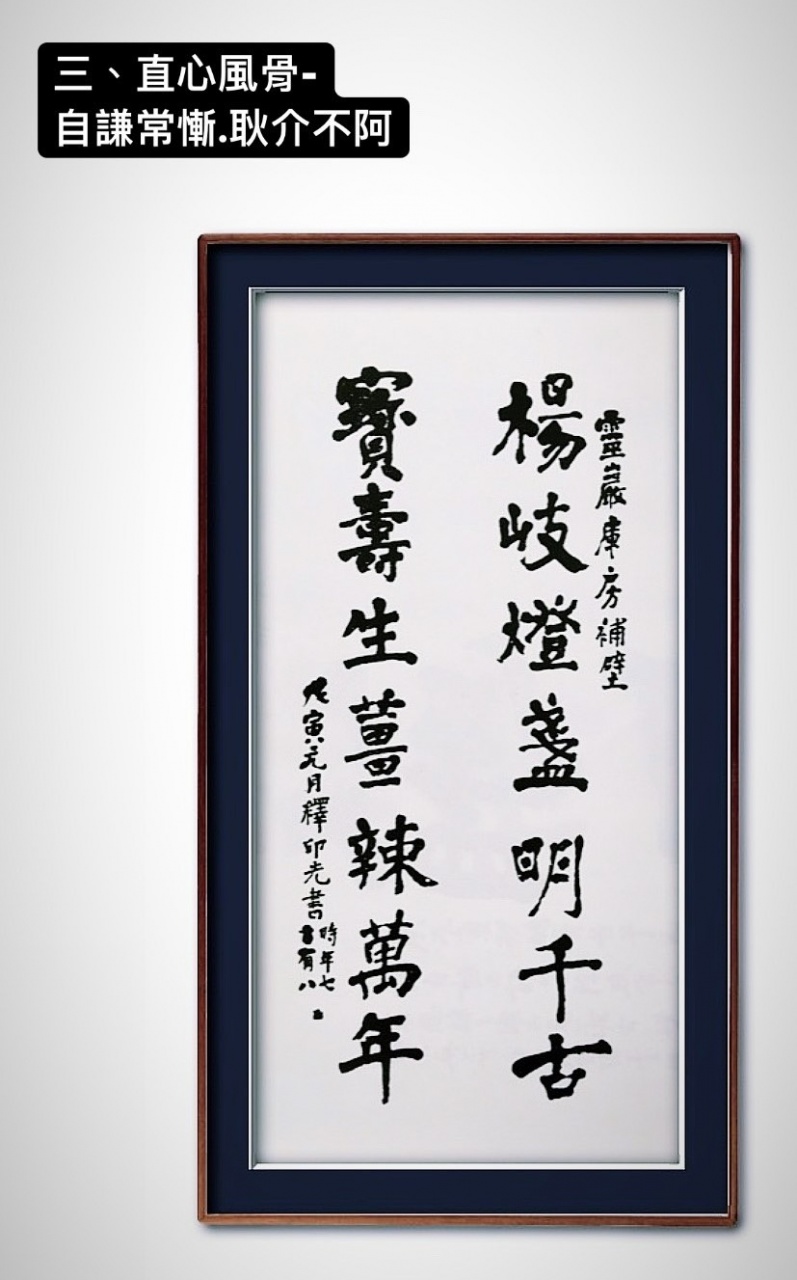 三、直心風骨-
自謙常慚.耿介不阿
靈巖庫房補壁
楊岐燈盞明千古
寶壽生薑辣萬年
戊寅元月釋印光書
時年七
十有八